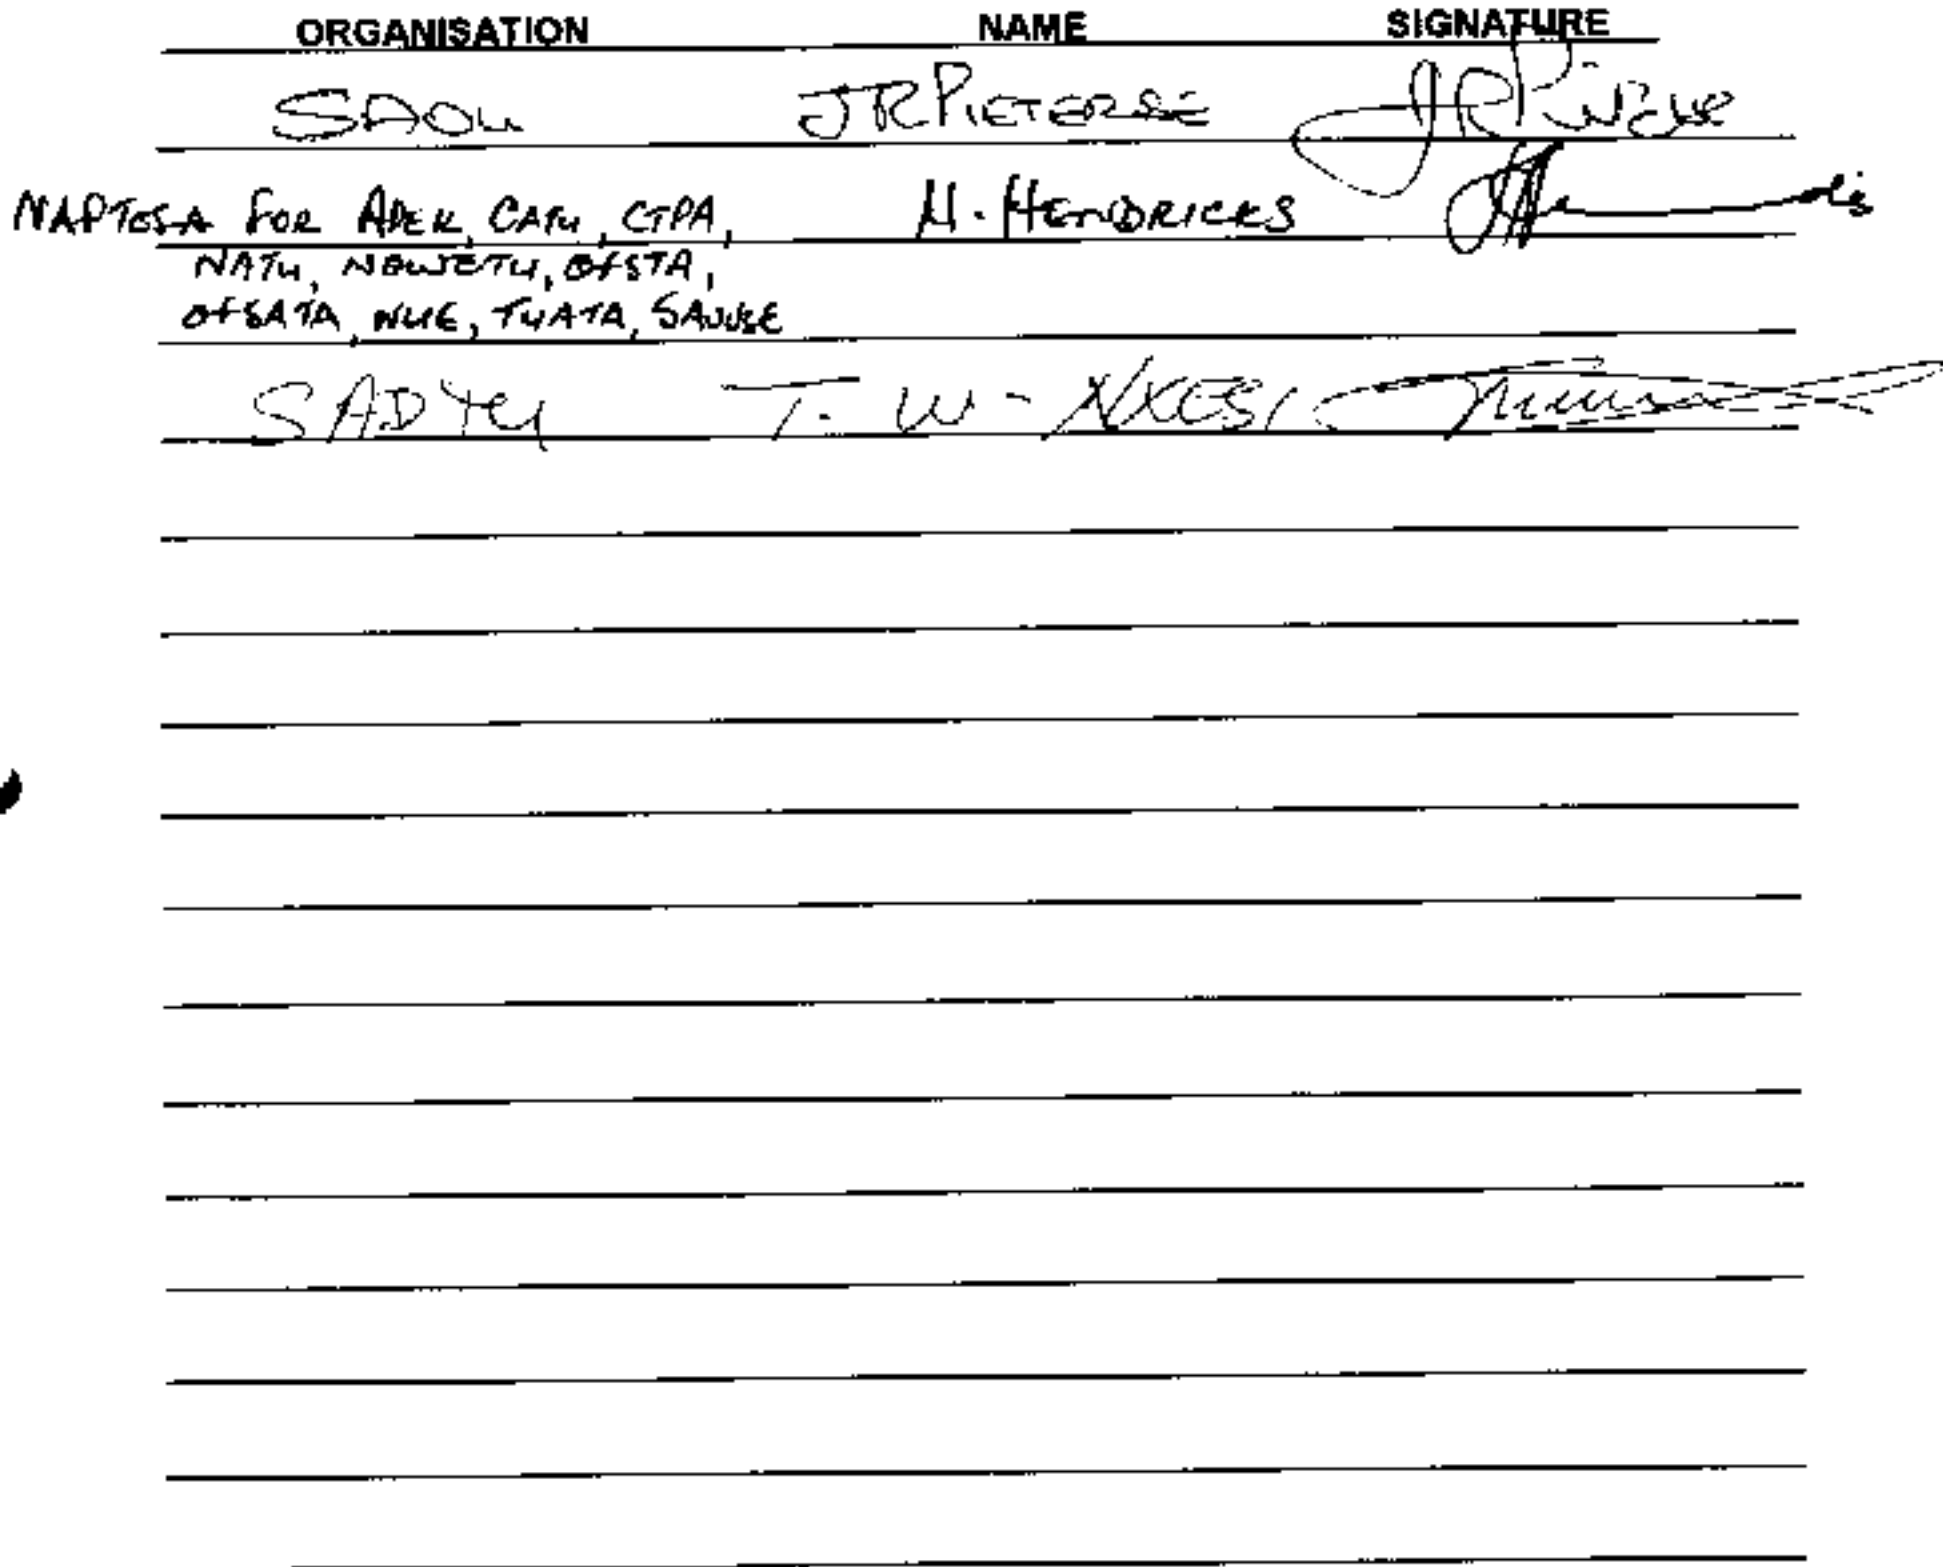 ORGANISATION NAME SIGNATURE
SAOU JR PIETERSE
NAPTOSA FOR APEK, CATU, CTPA, H. HENDRICKS
NATU, NOWETU, OFSTA,
OFSATA, NUE, TUATA, SAUVSE
SADTU T. W. NXESI